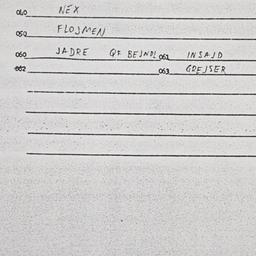 040 NEX
050 FLOJMEN
060 JADRE QF BEJNDL 061 INSAJD
062 063 GREJSER